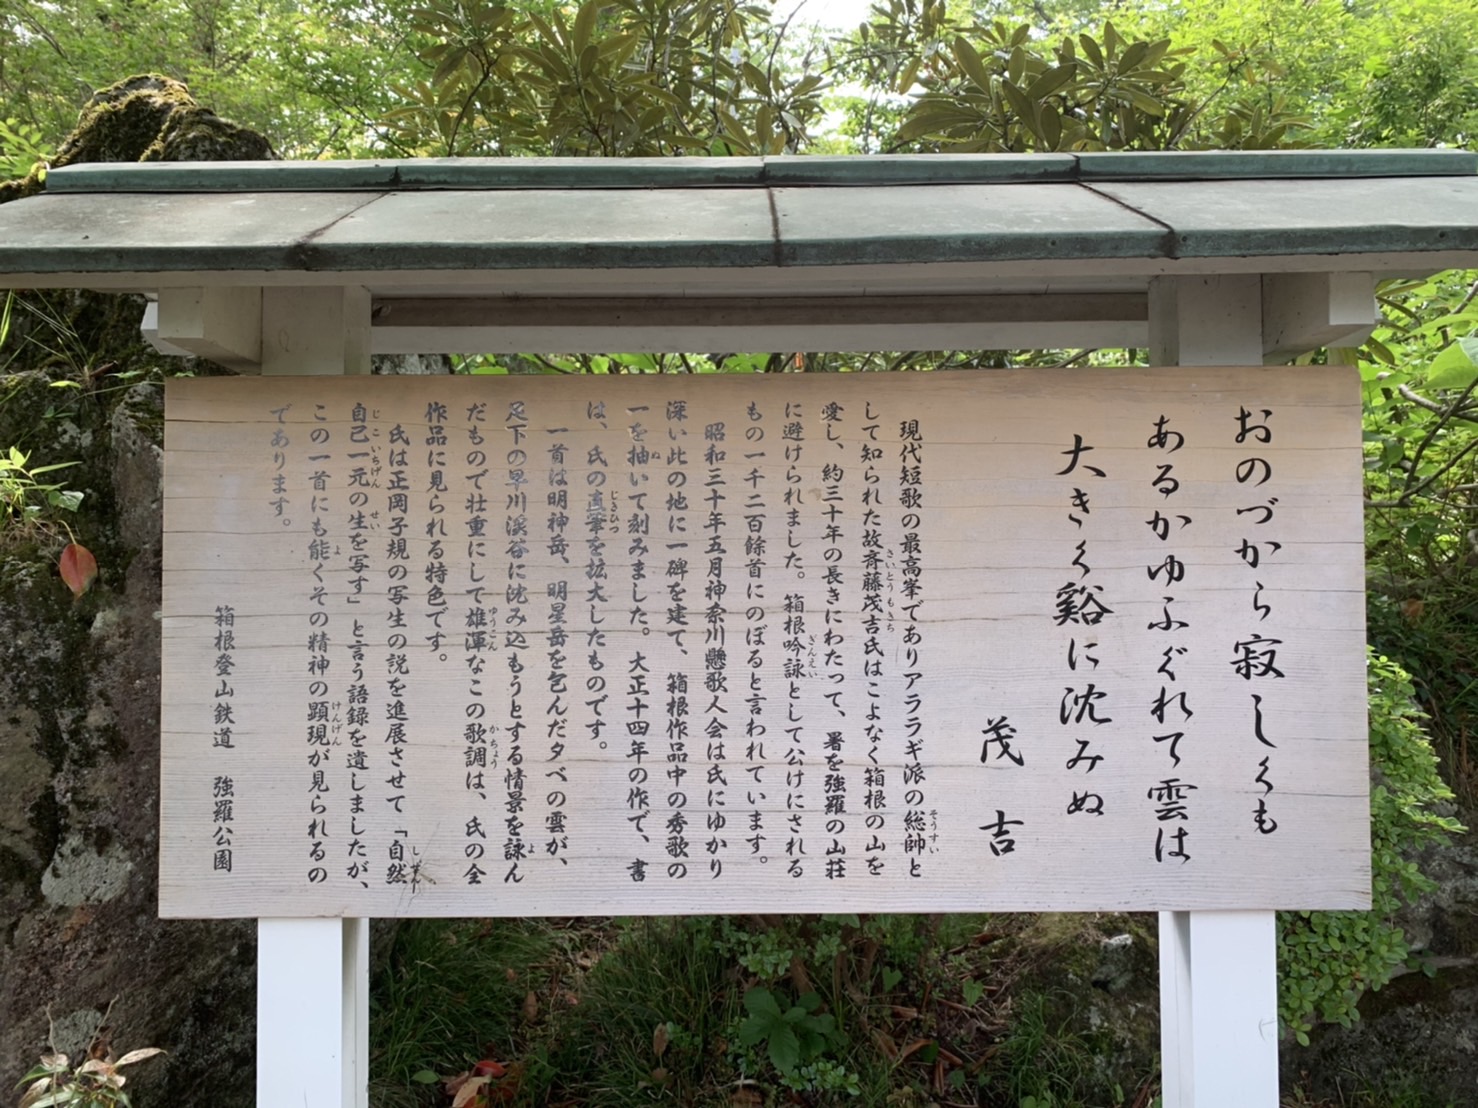 おのづから寂しくも
あるかゆふぐれて雲は
大きく谿に沈みぬ
茂吉
現代短歌の最高峯でありアララギ派の総帥と
して知られた故斉藤茂吉氏はこよなく箱根の山を
愛し、約三十年の長きにわたって、暑を強羅の山荘
に避けられました。箱根吟詠として公けにされる
もの一千二百餘首にのぼると言われています。
昭和三十年五月神奈川懸歌人会は氏にゆかり
深い此の地に一碑を建て、箱根作品中の秀歌の
一を抽いて刻みました。大正十四年の作で、書
は、氏の直筆を拡大したものです。
一首は明神岳、明星岳を包んだ夕べの雲が、
足下の早川溪谷に沈み込もうとする情景を詠ん
だもので壮重にして雄渾なこの歌調は、氏の全
作品に見られる特色です。
氏は正岡子規の写生の説を進展させて「自然
自己一元の生を写す」と言う語録を遺しましたが、
この一首にも能くその精神の顕現が見られるの
であります。
箱根登山鉄道 強羅公園